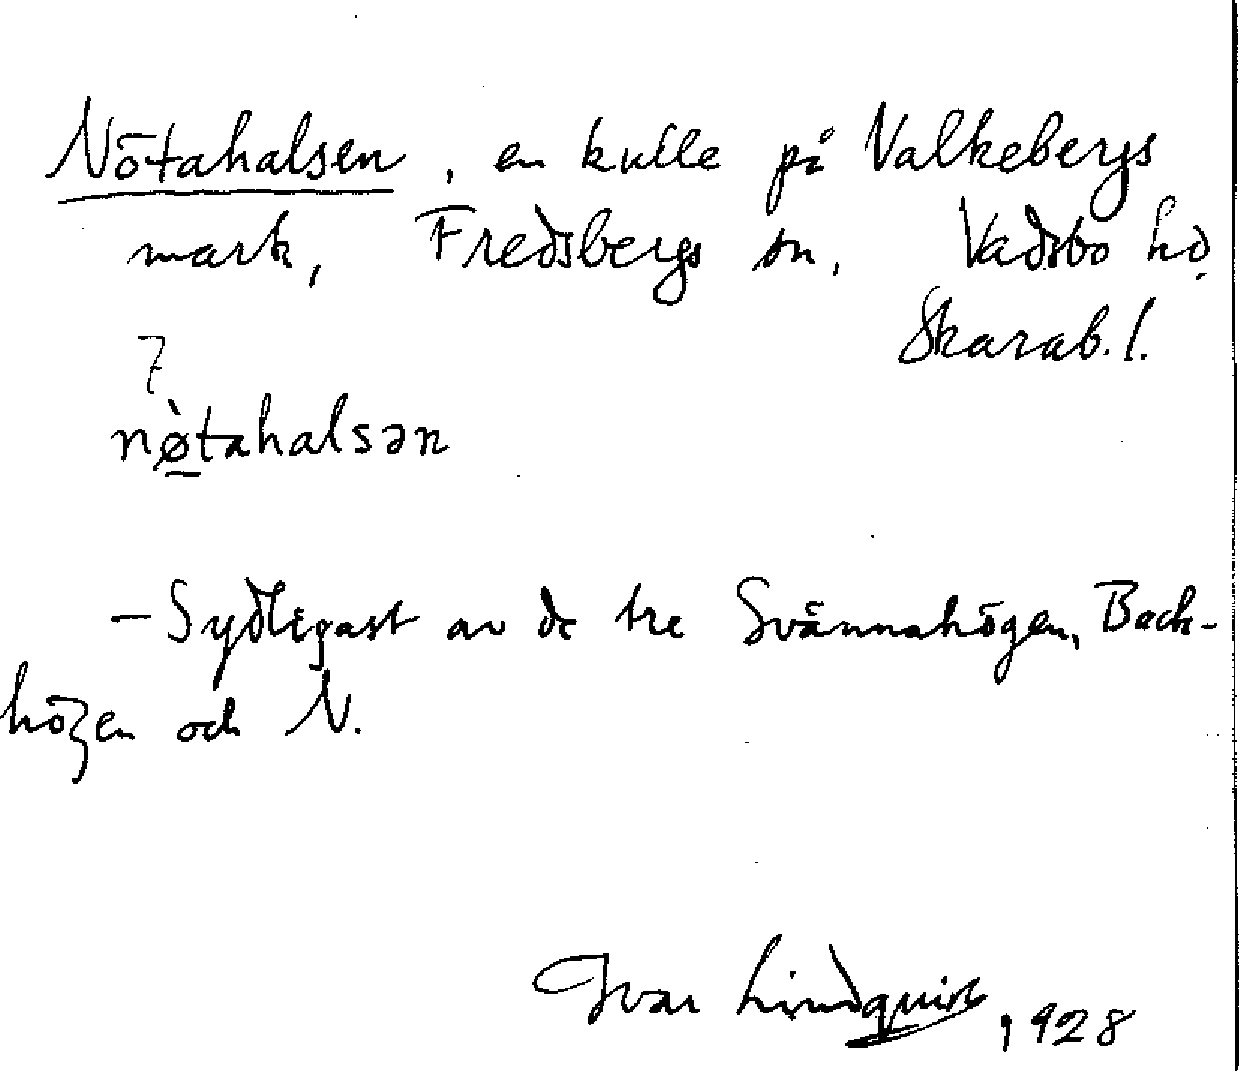 Nötahalsen, en kulle på Valkebergs
mark, Fredsbergs sn, Vadsbo hd
Skarab. l.
7
nø̀tahalsən
– Sydligast av de tre Svännahögen, Back-
högen och N.
Ivar Lindquist, 1928